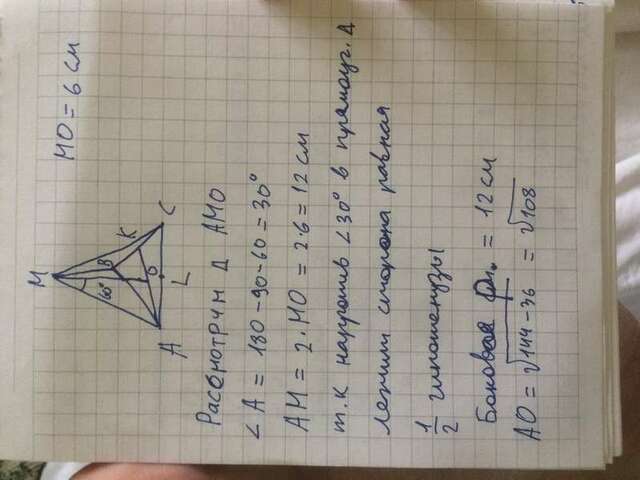 M
MO = 6 см
60°
B
K
O
A
L
C
Рассмотрим Δ AMO
∠A = 180 - 90 - 60 = 30°
AM = 2 · MO = 2 · 6 = 12 см
т.к напротив ∠30° в прямоуг. Δ
лежит сторона равная
1/2 гипотенузы
Боковое р. = 12 см
AO = √144 - 36 = √108